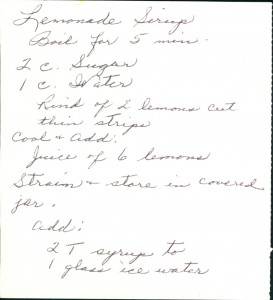 Lemonade Sirup
Boil for 5 min.
2 c. Sugar
1 c. Water
Rind of 2 lemons cut
thin strips
Cool & add.
Juice of 6 lemons
Strain & store in covered
jar.
add:
2 T syrup to
1 glass ice water